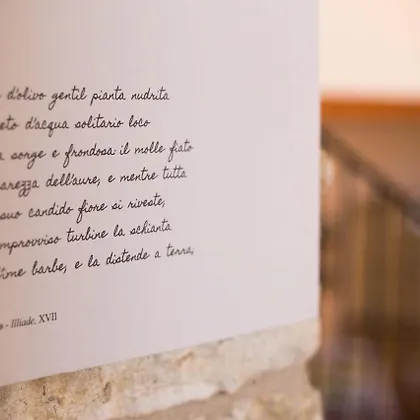 d'olivo gentil pianta nudrita
eto d'acqua solitario loco
a sorge e frondosa: il molle fiato
arezza dell'aure, e mentre tutta
suo candido fiore si riveste,
mprovviso turbine la schianta
ime barbe, e la distende a terra;
o - Iliade, XVII